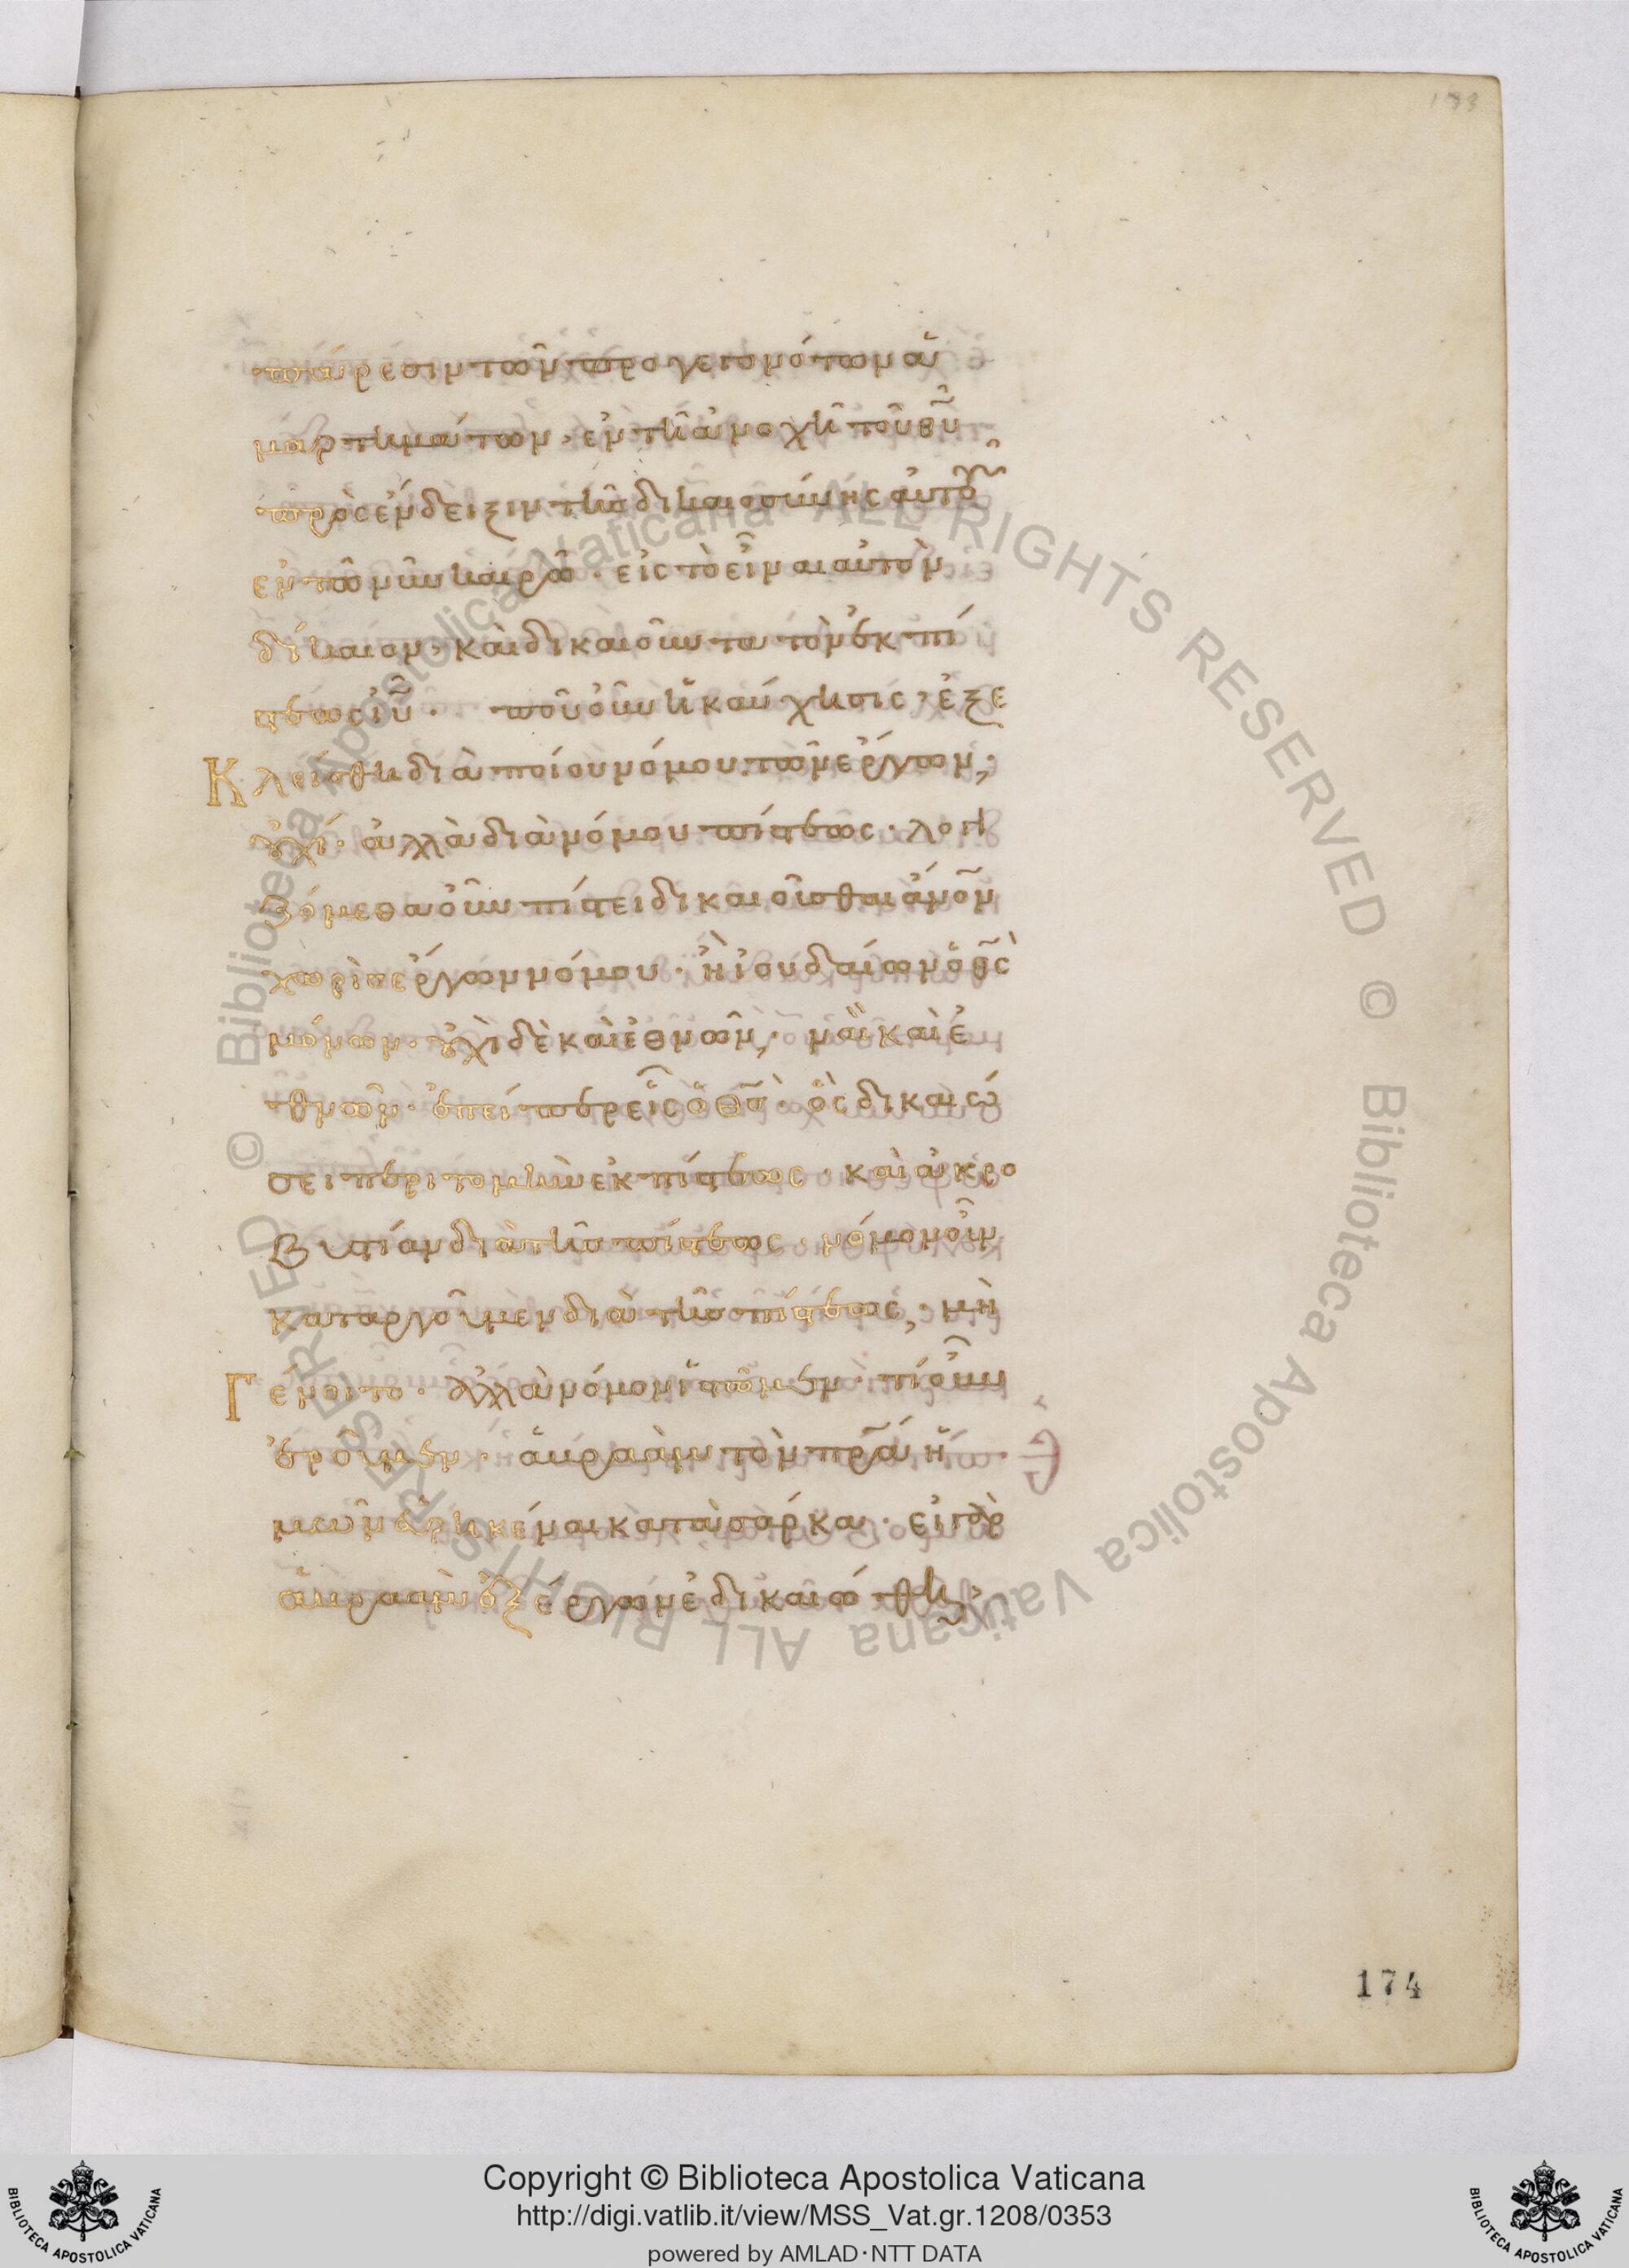 193
πάρεσιν τῶν προγεγονότων ἁ
μαρτημάτων· ἐν τῆ ἀνοχῆ τοῦ θ̅υ̅
πρὸς ἔνδειξιν τῆς δικαιοσύνης αὐτοῦ
ἐν τῶ νῦν καιρῶ· εἰς τὸ εἶναι αὐτὸν
δίκαιον· καὶ δικαιοῦντα τὸν ἐκ πί
στεως ἰ̅υ̅· ποῦ οὖν ἡ καύχησις· ἐξε
Κλείσθη διὰ ποίου νόμου· τῶν ἔργων;
οὐχί· ἀλλὰ διὰ νόμου πίστεως· λογι
ζόμεθα οὖν πίστει δικαιοῦσθαι ἄ̅ν̅ο̅ν̅
χωρὶς ἔργων νόμου· ἢ ἰουδαίων ὁ θ̅ς̅
μόνων· οὐχὶ δὲ καὶ ἐθνῶν; ναὶ καὶ ἐ
θνῶν· ἐπείπερ εἷς ὁ θ̅ς̅· ὃς δικαιώ
σει περιτομὴν ἐκ πίστεως· καὶ ἀκρο
βυστίαν διὰ τῆς πίστεως· νόμον οὖν
καταργοῦμεν διὰ τῆς πίστεως; μὴ
Γένοιτο· ἀλλὰ νόμον ἱστῶμεν· τί οὖν
ἐροῦμεν· ἀβραὰμ τὸν π̅ρ̅α̅ ἡ
μῶν εὑρηκέναι κατὰ σάρκα· εἰ γὰρ
ἀβραὰμ ἐξ ἔργων ἐδικαιώθη,
174
© Biblioteca Apostolica Vaticana ALL RIGHTS RESERVED © Biblioteca Apostolica Vaticana ALL RIGHTS RESERVED
BIBLIOTECA APOSTOLICA VATICANA
Copyright © Biblioteca Apostolica Vaticana
http://digi.vatlib.it/view/MSS_Vat.gr.1208/0353
powered by AMLAD·NTT DATA
BIBLIOTECA APOSTOLICA VATICANA